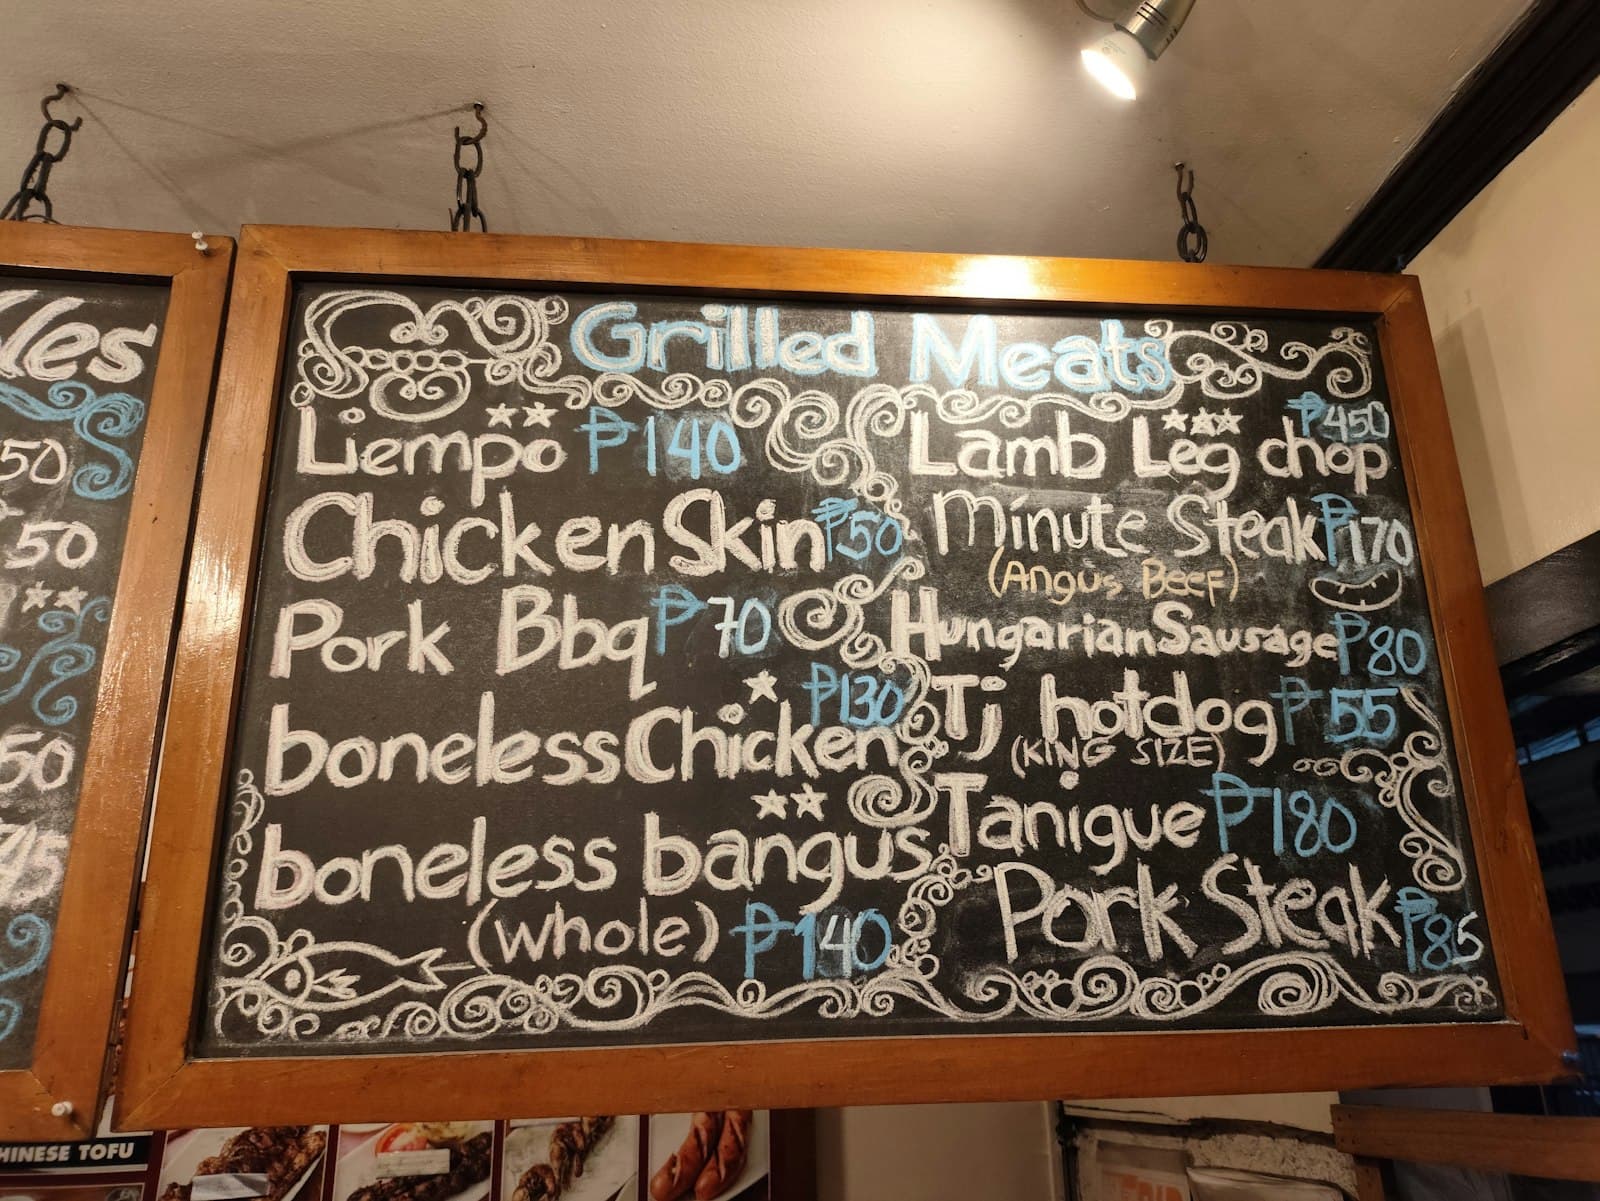 les
50
50
50
45
Grilled Meats
Liempo ₱140
Chicken Skin ₱50
Pork Bbq ₱70
boneless Chicken ₱130
boneless bangus
(whole) ₱140
Lamb Leg chop ₱450
Minute Steak ₱170
(Angus Beef)
Hungarian Sausage ₱80
Tj hotdog ₱55
(KING SIZE)
Tanigue ₱180
Pork Steak ₱85
HINESE TOFU